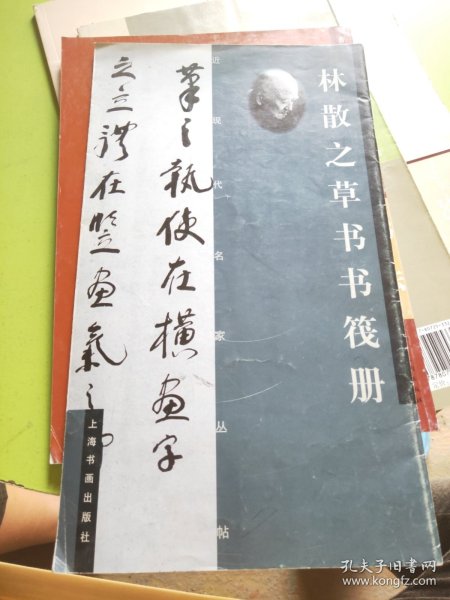 林散之草书书筏册
近现代名家丛帖
笔之执使在横画字
之立体在竖画气之
上海书画出版社
孔夫子旧书网
www.kongfz.com